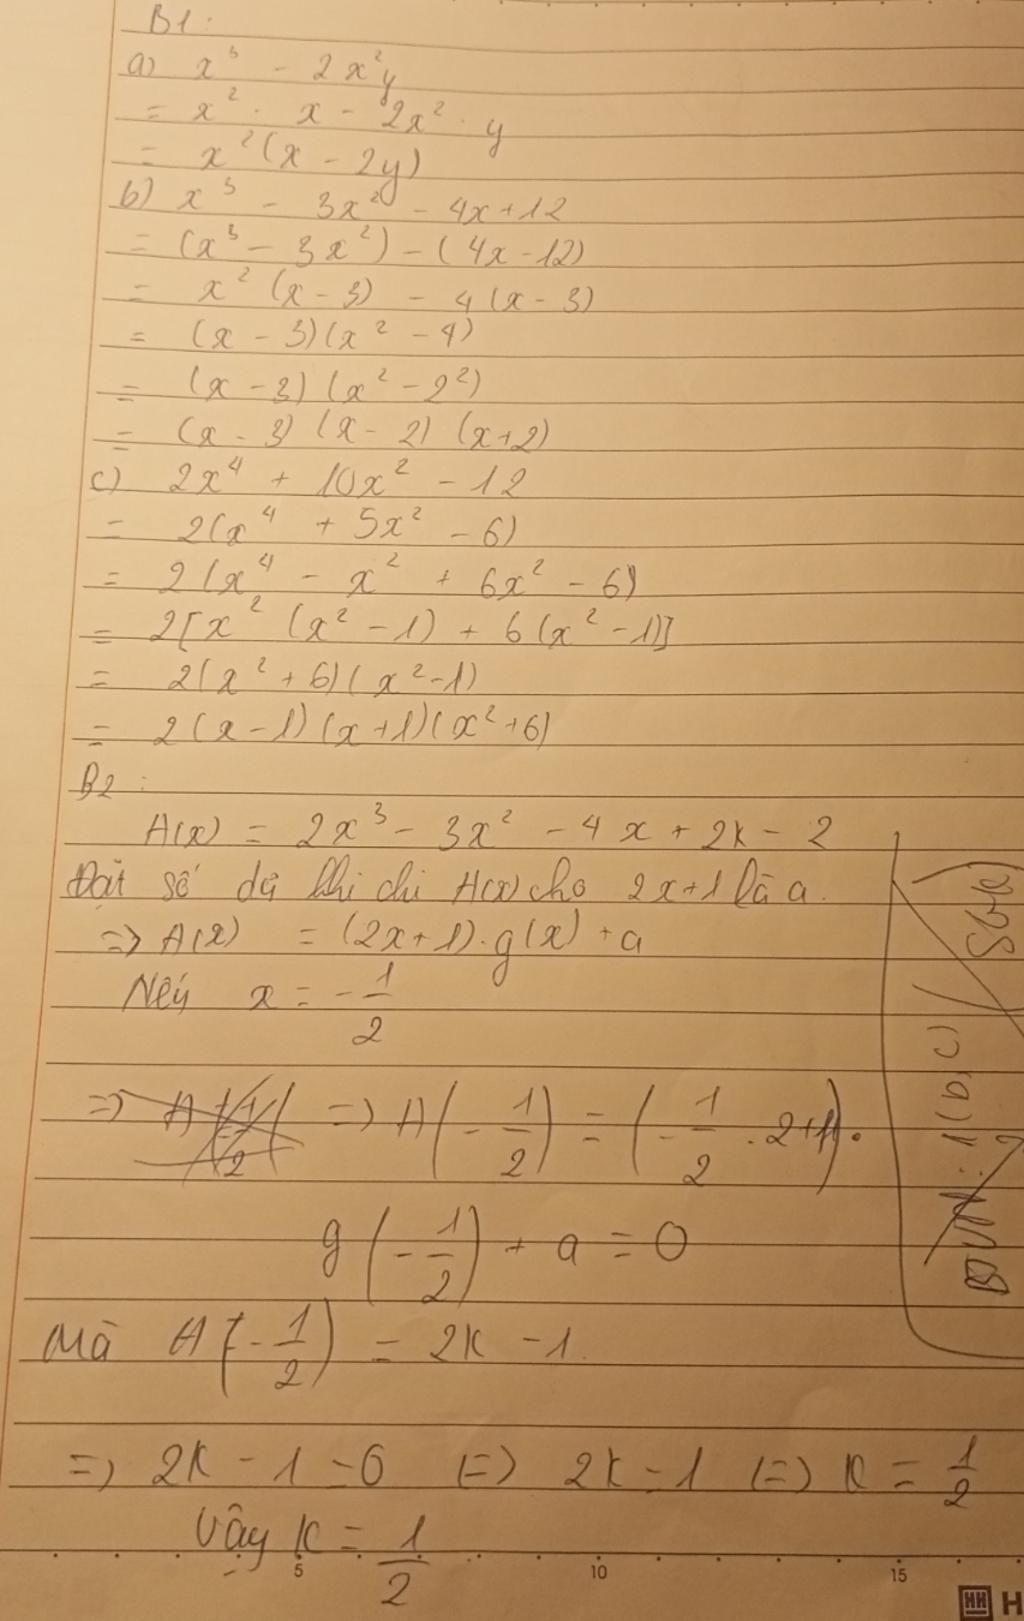 B1:
a) x³ - 2x²y
= x² . x - 2x² . y
= x²(x - 2y)
b) x³ - 3x² - 4x + 12
= (x³ - 3x²) - (4x - 12)
= x² (x - 3) - 4(x - 3)
= (x - 3)(x² - 4)
= (x - 3) (x² - 2²)
= (x - 3) (x - 2) (x+2)
c) 2x⁴ + 10x² - 12
= 2(x⁴ + 5x² - 6)
= 2(x⁴ - x² + 6x² - 6)
= 2[x² (x² - 1) + 6(x² - 1)]
= 2(x² + 6)(x² - 1)
= 2(x - 1)(x + 1)(x² + 6)
B2:
A(x) = 2x³ - 3x² - 4x + 2k - 2
Đặt số dư khi chi A(x) cho 2x+1 là a.
=> A(x) = (2x+1).g(x) + a
Nếu x = -1/2
=> A(-1/2) => A(-1/2) = (-1/2 . 2+1).
g(-1/2) + a = 0
Mà A(-1/2) = 2k - 1.
=> 2k - 1 = 0 (=) 2k = 1 (=) k = 1/2
Vậy k = 1/2
5 10 15
HH H